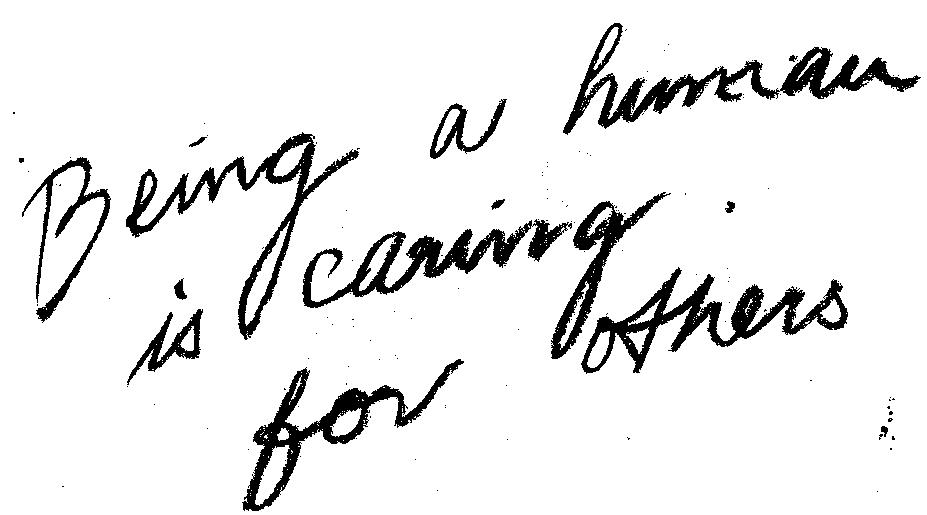 Being a human
is caring
for others